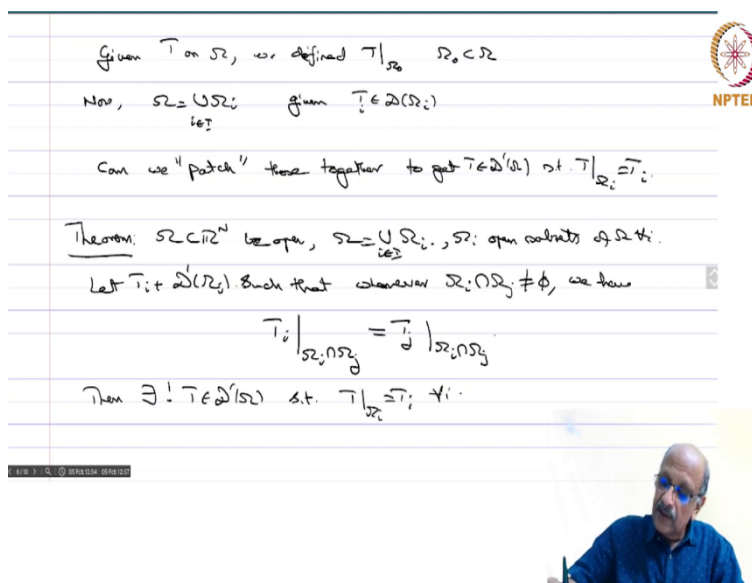 Given T on Ω, we defined T|_Ω₀ Ω₀ ⊂ Ω
Now, Ω = ∪Ωi given Ti ∈ D(Ωi)
i∈I
Can we "patch" these together to get T ∈ D'(Ω) s.t. T|_Ωi = Ti.
Theorem: Ω ⊂ ℝ^N be open, Ω = ∪ Ωi., Ωi open subsets of Ω ∀i.
i∈I
Let Ti ∈ D'(Ωi) such that whenever Ωi ∩ Ωj ≠ ϕ, we have
Ti|_Ωi∩Ωj = Tj|_Ωi∩Ωj.
Then ∃! T ∈ D'(Ω) s.t. T|_Ωi = Ti ∀i.
NPTEL
6/10 05 Feb 12:54 05 Feb 12:57